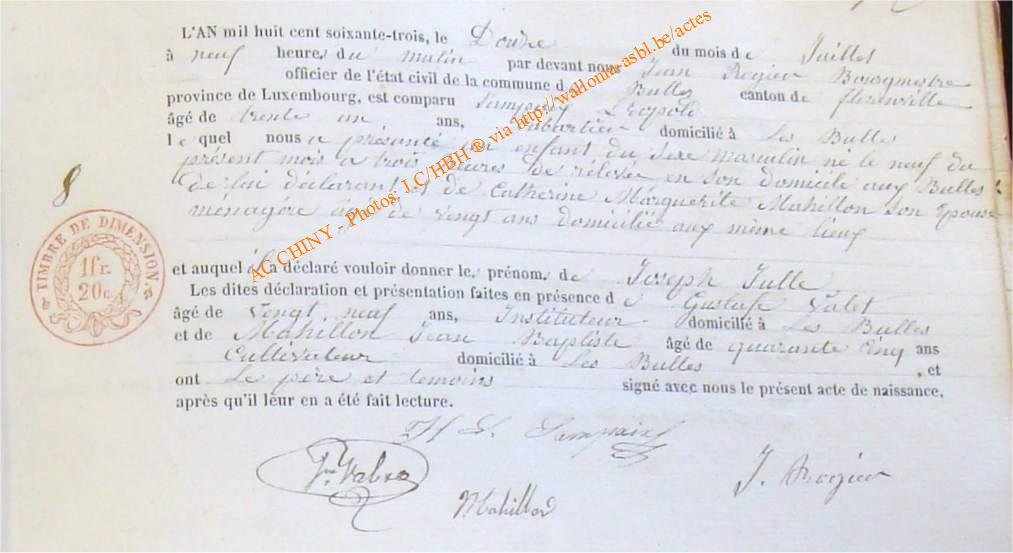 L'AN mil huit cent soixante-trois, le Douze du mois de Juillet
à neuf heures du matin par devant nous Jean Rogier Bourgmestre
officier de l'état civil de la commune de Bulles canton de florenville
province de Luxembourg, est comparu Sampaix Léopold
âgé de trente un ans, Cabartier domicilié à Les Bulles
lequel nous a présenté un enfant du sexe masculin né le neuf du
présent mois a trois heures de relevée en son domicile aux Bulles
de lui déclarant et de Catherine Marguerite Mahillon son Epouse
ménagère âgée de vingt ans domicilié aux même lieux
8
TIMBRE DE DIMENSION.
1 fr.
20 c.
et auquel il a déclaré vouloir donner les prénoms de Joseph Julle
Les dites déclaration et présentation faites en présence de Gustafe
âgé de Vingt neuf ans, Instituteur domicilié à Les Bulles
et de Mahillon Jean Baptiste âgé de quarante cinq ans
Cultivateur domicilié à Les Bulles, et
ont Le père et temoins signé avec nous le présent acte de naissance,
après qu'il leur en a été fait lecture.
L. Sampaix
J. Rogier
Mahillon
AC CHINY - Photos: J.C/HBH ® via http://wallonia-asbl.be/actes